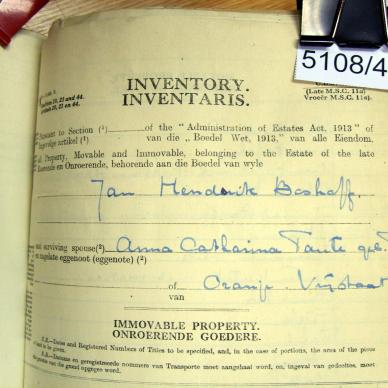 5108/4
INVENTORY.
INVENTARIS.
10, 23 and 44.
23 en 44.
(Late M.S.C. 11a)
Vroeër M.S.C. 11a).
Pursuant to Section (¹) of the "Administration of Estates Act, 1913" of
ingevolge artikel (¹) van die „Boedel Wet, 1913," van alle Eiendom,
Property, Movable and Immovable, belonging to the Estate of the late
Roerende en Onroerende, behorende aan die Boedel van wyle
Jan Hendrik Boshoff.
and surviving spouse(²) Anna Catharina Taute
en nagelate eggenoot (eggenote) (²)
of Oranje Vrystaat
van
IMMOVABLE PROPERTY.
ONROERENDE GOEDERE.
N.B.—Dates and Registered Numbers of Titles to be specified, and, in the case of portions, the area of the piece
to be given.
N.B.—Datums en geregistreerde nommers van Transporte moet aangehaal word, en, ingeval van gedeeltes, moet
die grootte van die grond opgegee word.